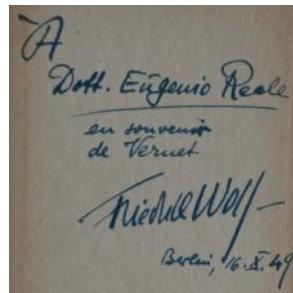 A
Dott. Eugenio Reale
en souvenir
de Vernet
Friedrich Wolf
Berlin, 16.X.49